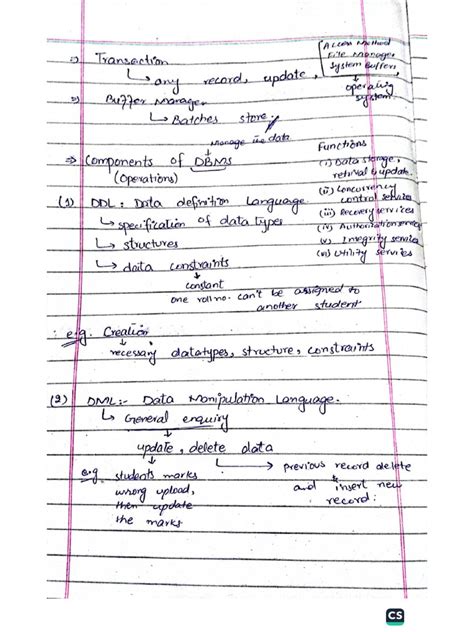 Access Method
File Manager
System Buffers
operating
system.
Transaction
any record, update,
Buffer Manager
Batches store
Manage the data
⇒ Components of DBMS
(Operations)
Functions
(i) Data storage,
retrival & update.
(ii) Concurrency
control service
(iii) Recovery services
(iv) Authorization service
(v) Integrity service
(vi) Utility services
(1) DDL : Data definition Language
specification of data types
structures
data constraints
constant
one roll no. can't be assigned to
another student
e.g. Creation
necessary datatypes, structure, constraints
(2) DML:- Data Manipulation Language.
General enquiry
update, delete data
e.g students marks
wrong upload,
then update
the marks
previous record delete
and insert new
record.
CS